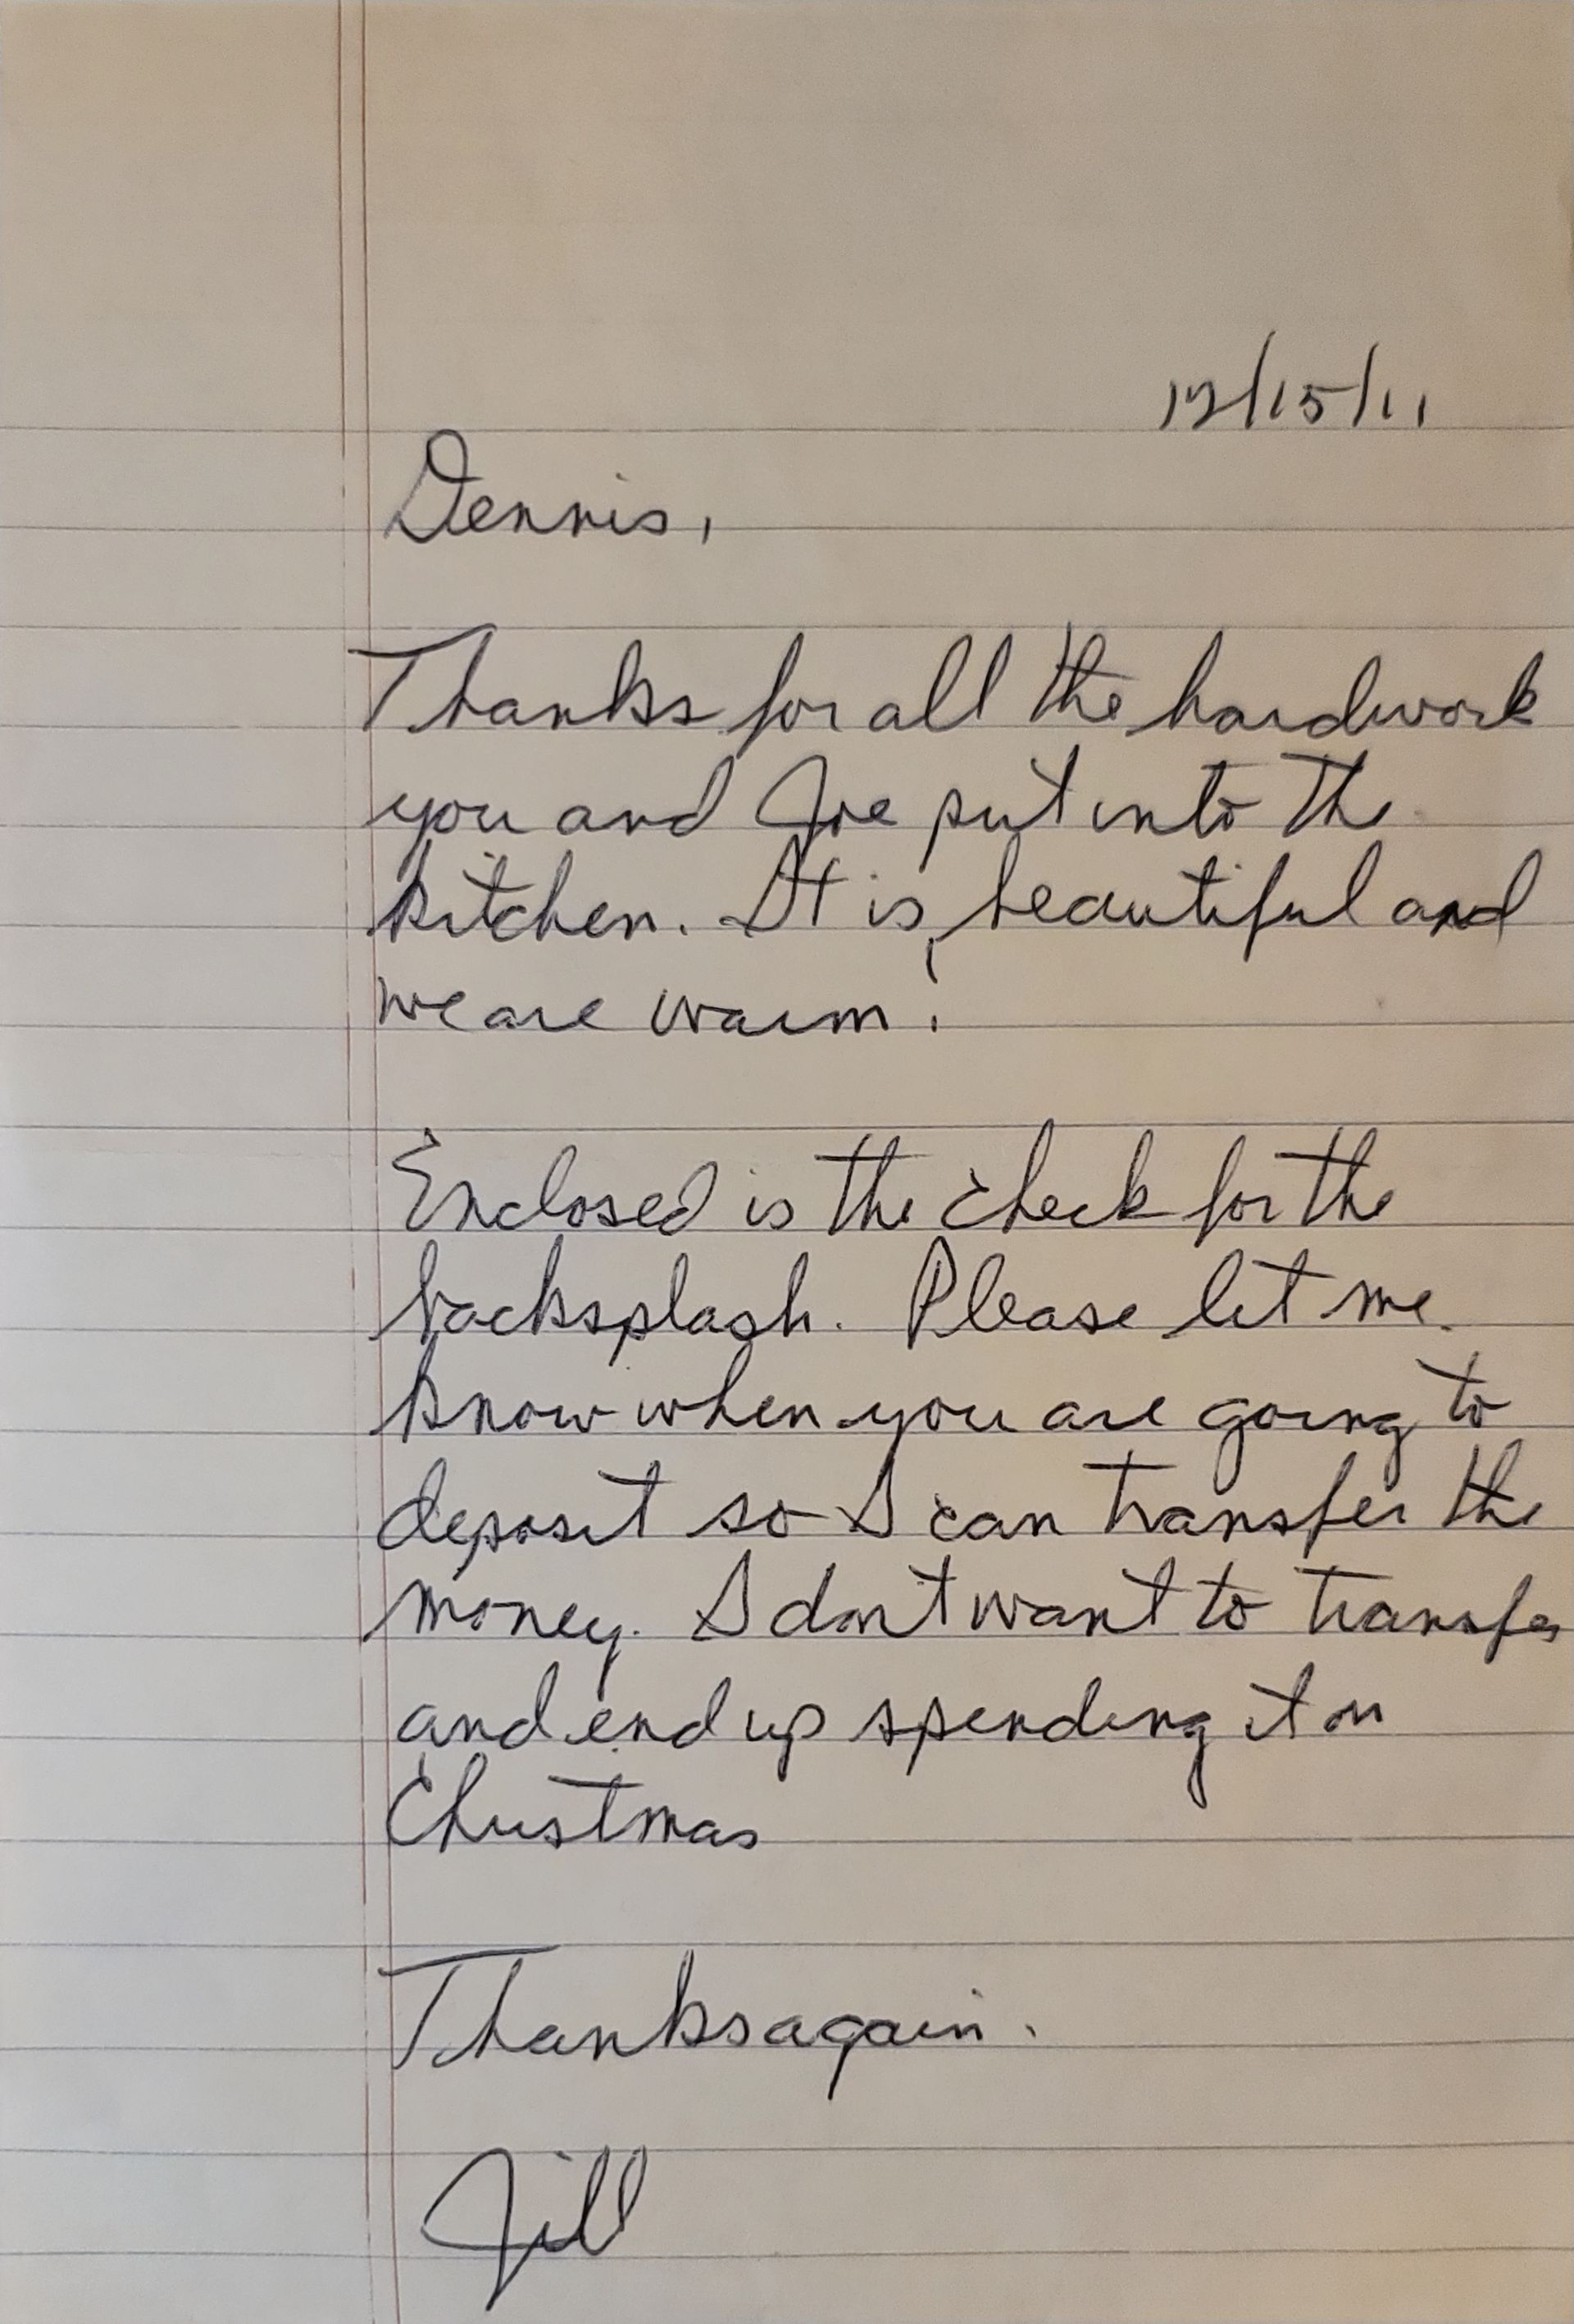 12/15/11
Dennis,
Thanks for all the hardwork
you and Joe put into the
kitchen. It is beautiful and
we are warm!
Enclosed is the check for the
backsplash. Please let me
know when you are going to
deposit so I can transfer the
money. I don't want to transfer
and end up spending it on
Christmas
Thanks again.
Jill